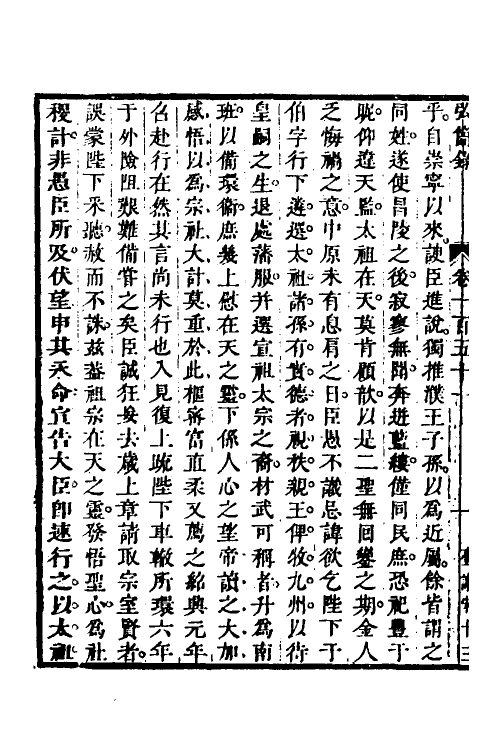 弘簡錄 卷一百五十一
乎自崇寧以來諛臣進說獨推濮王子孫以爲近屬餘皆謂之
同姓遂使昌陵之後寂寥無聞奔迸藍縷僅同民庶恐祀豐于
昵仰違天監太祖在天莫肯顧歆以是二聖無回鑾之期金人
乏悔禍之意中原未有息肩之日臣愚不識忌諱欲乞陛下于
伯字行下遴選太祖諸孫有賢德者視秩親王俾牧九州以待
皇嗣之生退處藩服幷選宣祖太宗之裔材武可稱者升爲南
班以備環衞庶幾上慰在天之靈下係人心之望帝讀之大加
感悟以爲宗社大計莫重於此樞密富直柔又薦之紹興元年
召赴行在然其言尚未行也入見復上疏陛下車轍所環六年
于外險阻艱難備甞之矣臣誠狂妄去歲上章請取宗室賢者
誤蒙陛下釆聽赦而不誅兹葢祖宗在天之靈發悟聖心爲社
稷計非愚臣所及伏望申其天命宣告大臣卽速行之以太祖